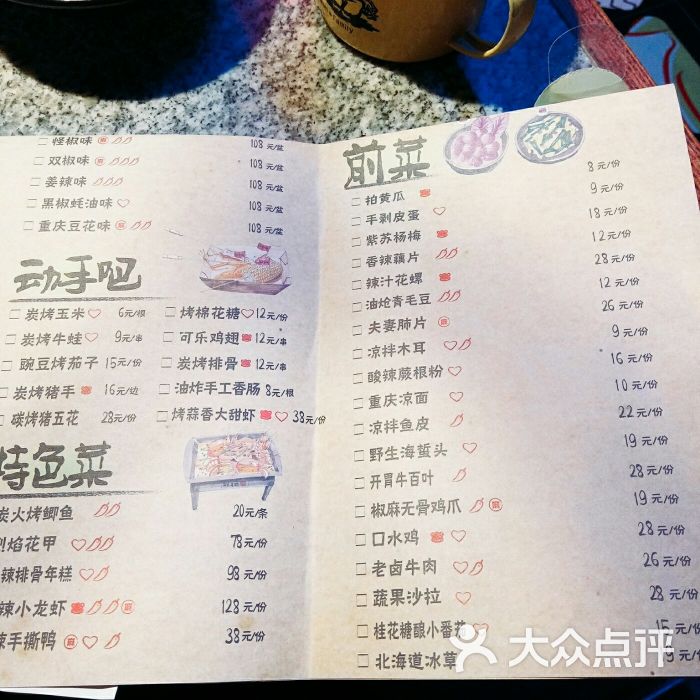 Family
怪椒味 麻 108元/盆
双椒味 麻 108元/盆
姜辣味 108元/盆
黑椒蚝油味 108元/盆
重庆豆花味 麻 108元/盆
动手吧
炭烤玉米 6元/根
炭烤牛蛙 9元/串
豌豆烤茄子 15元/份
炭烤猪手 16元/边
碳烤猪五花 28元/份
烤棉花糖 12元/份
可乐鸡翅 12元/串
炭烤排骨 12元/串
油炸手工香肠 8元/根
烤蒜香大甜虾 38元/份
特色菜
炭火烤鲫鱼 20元/条
烈焰花甲 78元/份
辣排骨年糕 98元/份
辣小龙虾 麻 128元/份
辣手撕鸭 麻 38元/份
前菜
拍黄瓜 8元/份
手剥皮蛋 9元/份
紫苏杨梅 18元/份
香辣藕片 12元/份
辣汁花螺 28元/份
油炝青毛豆 12元/份
夫妻肺片 麻 26元/份
凉拌木耳 9元/份
酸辣蕨根粉 16元/份
重庆凉面 10元/份
凉拌鱼皮 22元/份
野生海蜇头 19元/份
开胃牛百叶 28元/份
椒麻无骨鸡爪 麻 19元/份
口水鸡 28元/份
老卤牛肉 26元/份
蔬果沙拉 28元/份
桂花糖酿小番茄 15元/份
北海道冰草 9元/份
大众点评